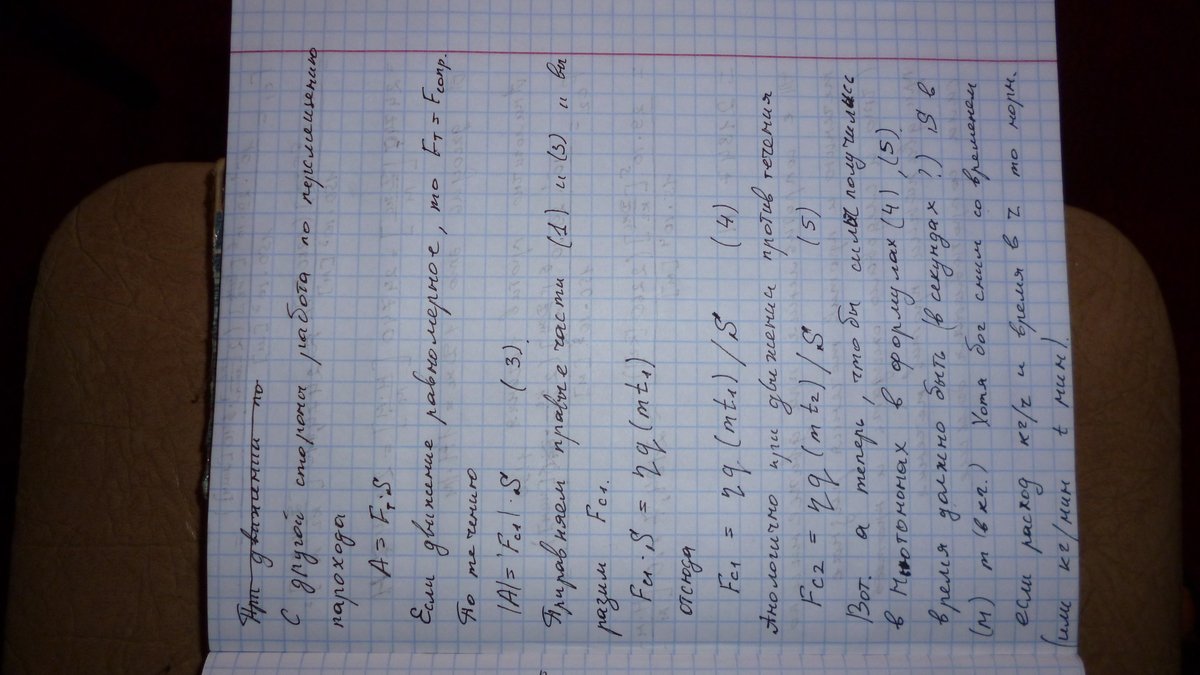 При движении по
С другой стороны работа по перемещению
парохода
A = Fт·S
Если движение равномерное, то Fт = Fсопр.
По течению
|A| = |Fс1|·S (3)
Приравняем правые части (1) и (3) и вы
разим Fс1.
Fс1·S = ηq(mt1)
отсюда
Fс1 = ηq(mt1)/S (4)
Анологично при движении против течения
Fс2 = ηq(mt2)/S (5)
Вот. а теперь, что бы силы получились
в Ньютононах в формулах (4), (5)
время должно быть (в секундах ?) S в
(м) m (в кг.) Хотя бог с ним со временем
если расход кг/ч и время в ч то норм.
(или кг/мин t мин).